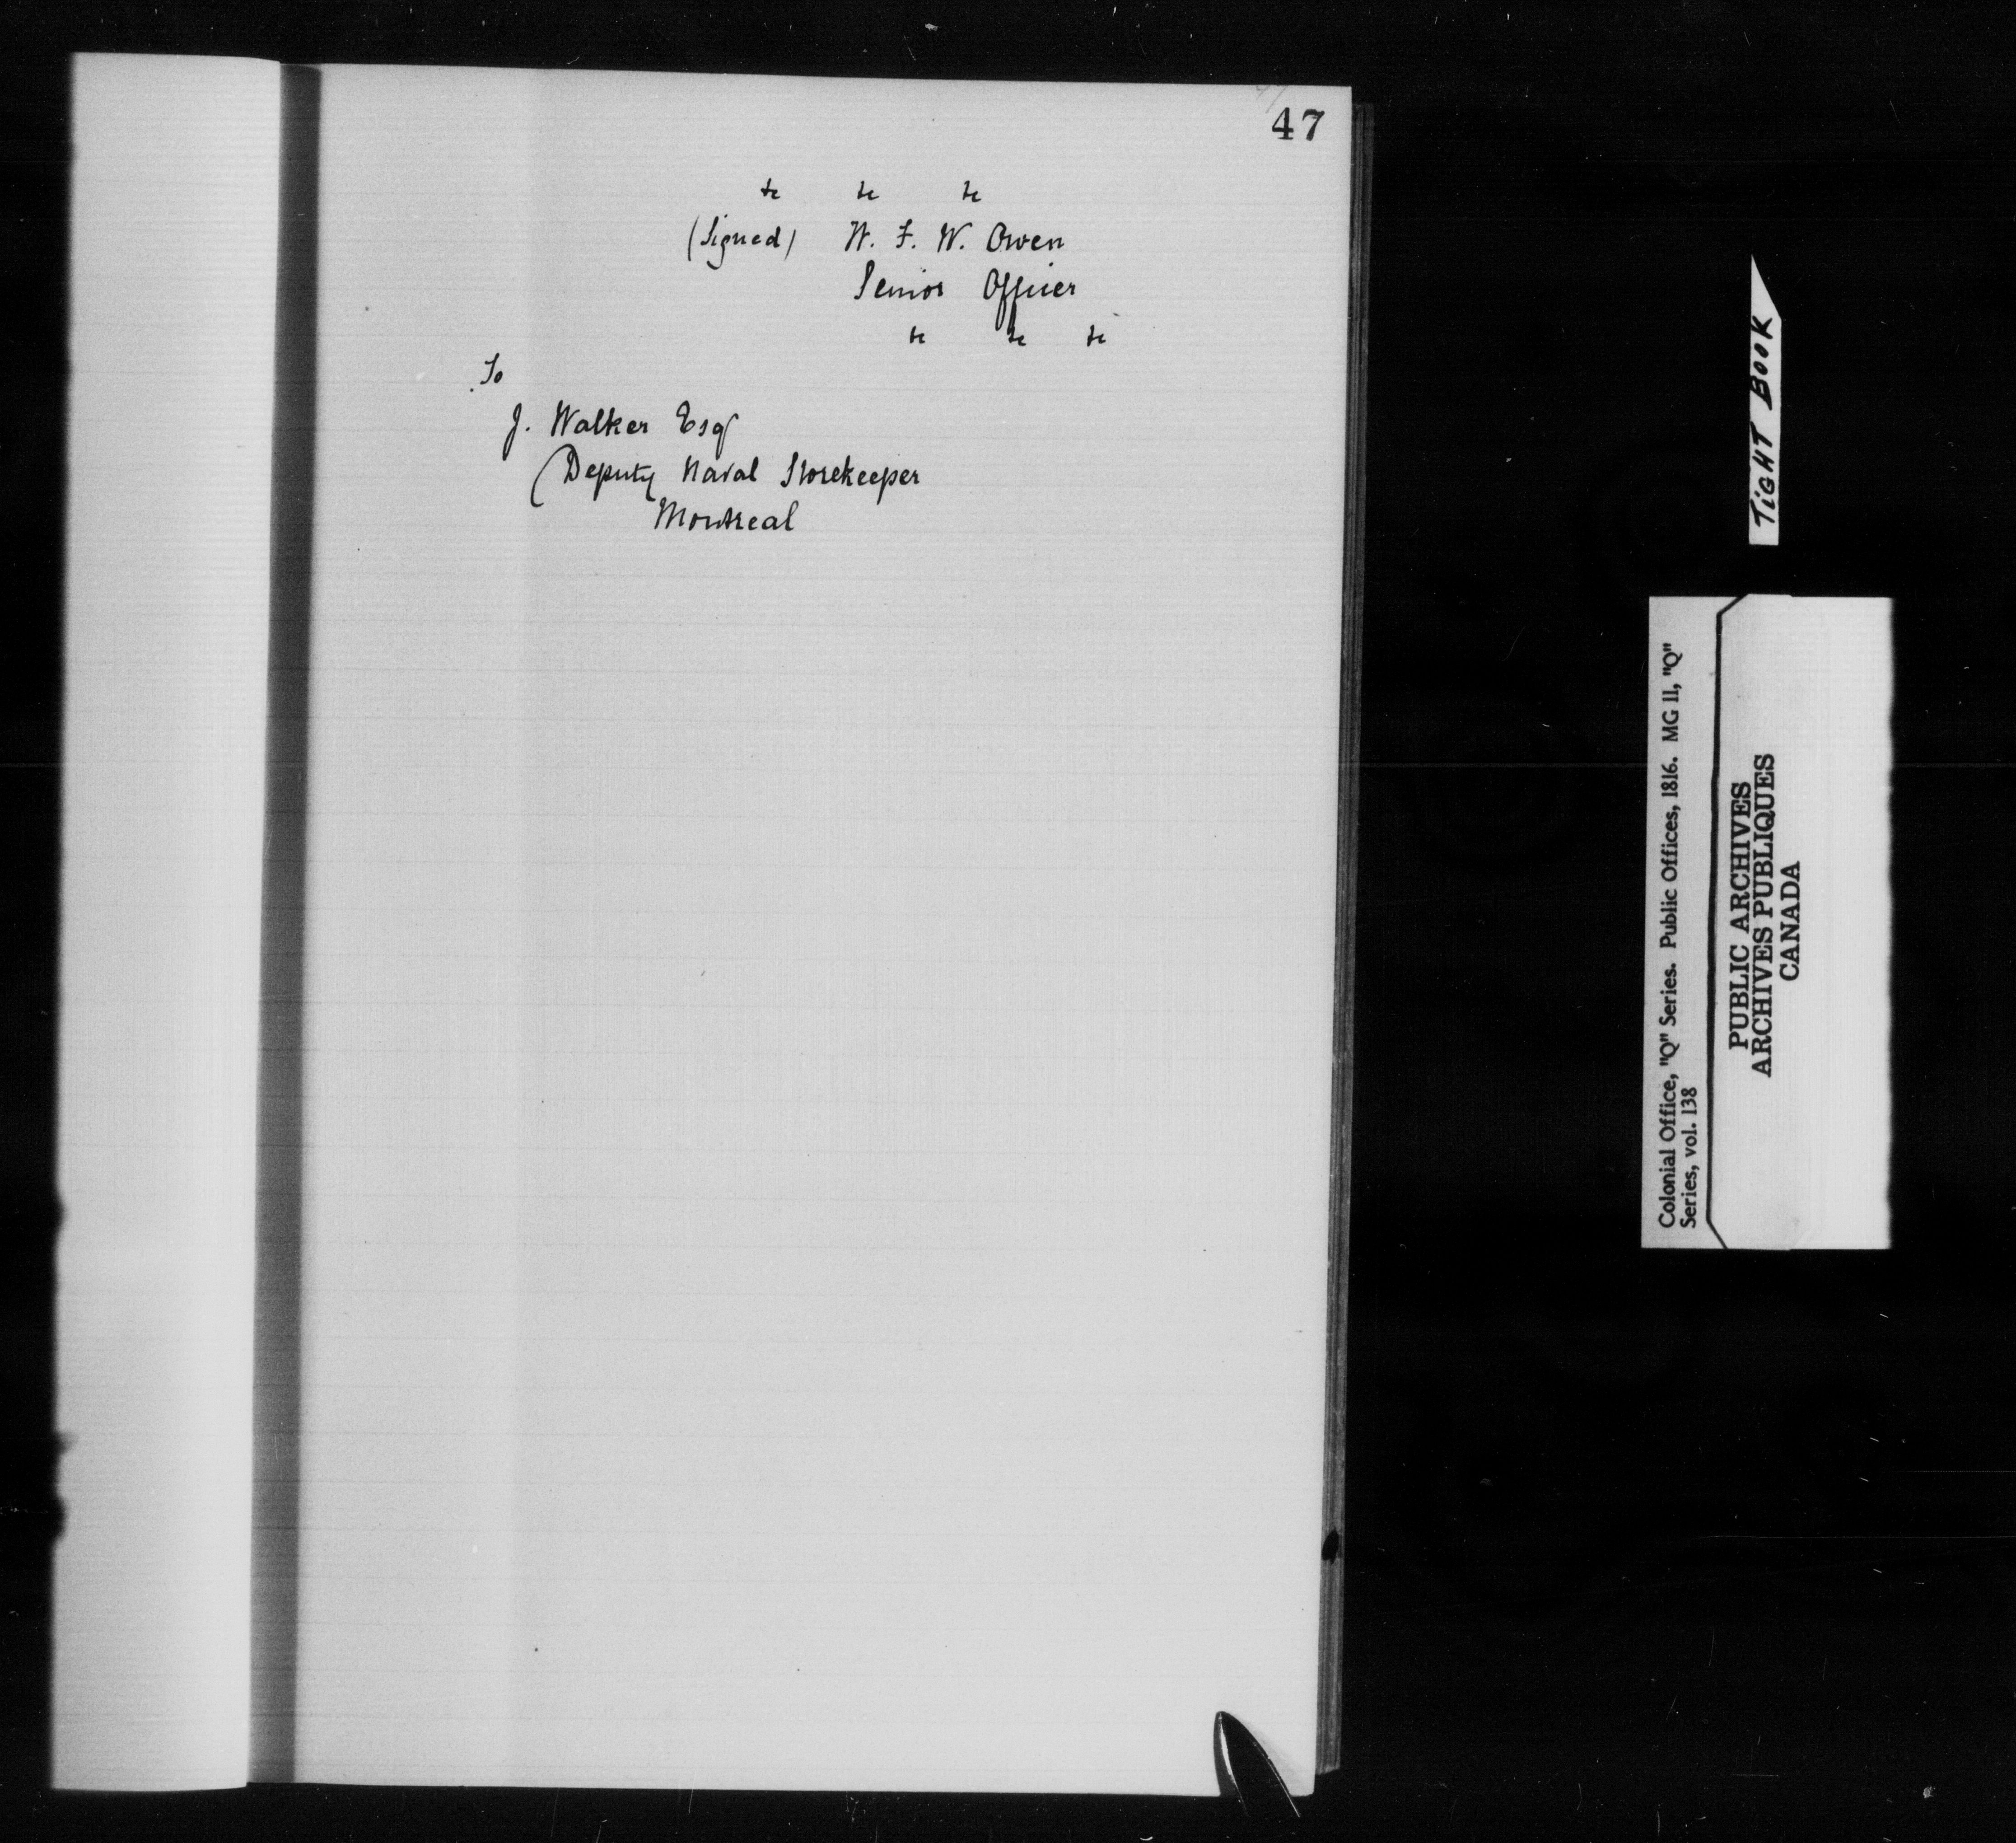 47
&c &c &c
(Signed) W. F. W. Owen
Senior Officer
&c &c &c
To
J. Walker Esq
Deputy Naval Storekeeper
Montreal
TIGHT BOOK
Colonial Office, "Q" Series. Public Offices, 1816. MG 11, "Q"
Series, vol. 138
PUBLIC ARCHIVES
ARCHIVES PUBLIQUES
CANADA